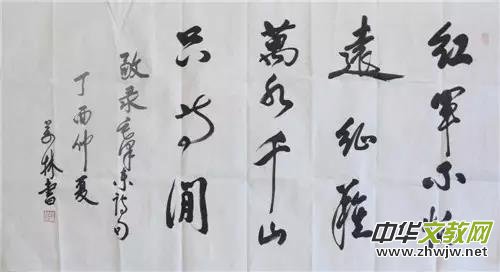 紅軍不怕
遠征難
萬水千山
只等閒
敬录毛泽东诗句
丁酉仲夏
林書
中华文教网
www.zhwjw.net